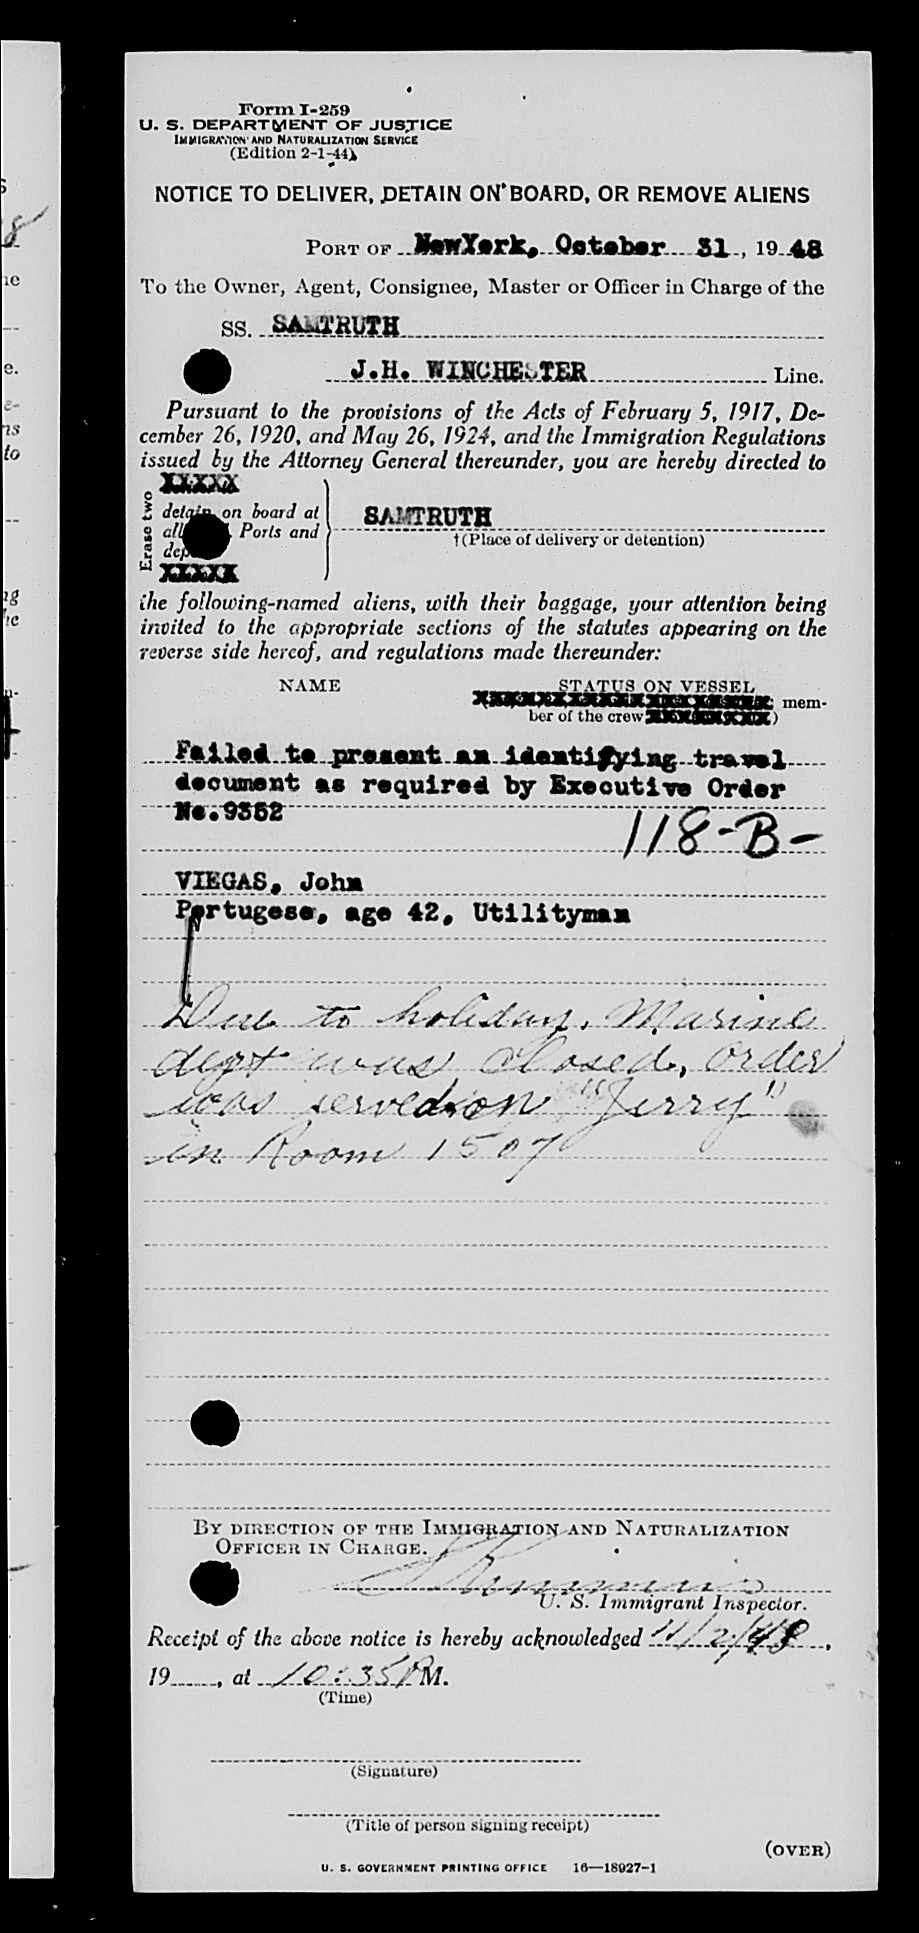 Form I-259
U. S. DEPARTMENT OF JUSTICE
IMMIGRATION AND NATURALIZATION SERVICE
(Edition 2-1-44)
NOTICE TO DELIVER, DETAIN ON BOARD, OR REMOVE ALIENS
PORT OF NewYork, October 31, 19 48
To the Owner, Agent, Consignee, Master or Officer in Charge of the
SS. SAMTRUTH
J.H. WINCHESTER Line.
Pursuant to the provisions of the Acts of February 5, 1917, De-
cember 26, 1920, and May 26, 1924, and the Immigration Regulations
issued by the Attorney General thereunder, you are hereby directed to
XXXXX
Erase two
detain on board at
all Ports and
SAMTRUTH
†(Place of delivery or detention)
XXXXX
the following-named aliens, with their baggage, your attention being
invited to the appropriate sections of the statutes appearing on the
reverse side hereof, and regulations made thereunder:
NAME STATUS ON VESSEL
mem-
ber of the crew )
Failed to present an identifying travel
document as required by Executive Order
No.9352
118-B-
VIEGAS, John
Portugese, age 42, Utilityman
Due to holiday, Marine
dept was closed, order
was served on "Jerry"
in Room 1507
BY DIRECTION OF THE IMMIGRATION AND NATURALIZATION
OFFICER IN CHARGE.
U. S. Immigrant Inspector.
Receipt of the above notice is hereby acknowledged 11/2/48,
19, at 10:35 P M.
(Time)
(Signature)
(Title of person signing receipt)
(OVER)
U. S. GOVERNMENT PRINTING OFFICE 16—18927-1